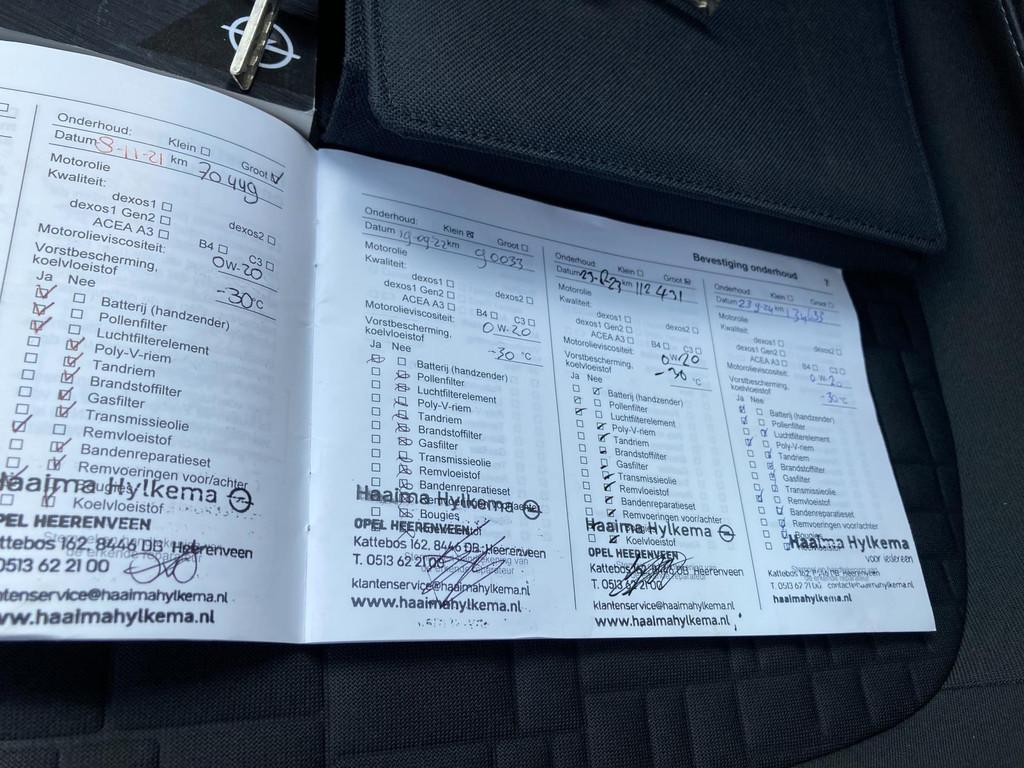 Onderhoud: Klein Groot
Datum 8-11-21 km 70449
Motorolie
Kwaliteit:
dexos1
dexos1 Gen2 dexos2
ACEA A3 B4 C3
Motorolieviscositeit: 0W-20
Vorstbescherming,
koelvloeistof -30°C
Ja Nee
Batterij (handzender)
Pollenfilter
Luchtfilterelement
Poly-V-riem
Tandriem
Brandstoffilter
Gasfilter
Transmissieolie
Remvloeistof
Bandenreparatieset
Remvoeringen voor/achter
Bougies
Koelvloeistof
Haaima Hylkema
OPEL HEERENVEEN
Kattebos 162, 8446 DB Heerenveen
0513 62 21 00
klantenservice@haaimahylkema.nl
www.haaimahylkema.nl
Onderhoud: Klein Groot
Datum 19-09-22 km 90033
Motorolie
Kwaliteit:
dexos1
dexos1 Gen2 dexos2
ACEA A3 B4 C3
Motorolieviscositeit: 0W-20
Vorstbescherming,
koelvloeistof -30 °C
Ja Nee
Batterij (handzender)
Pollenfilter
Luchtfilterelement
Poly-V-riem
Tandriem
Brandstoffilter
Gasfilter
Transmissieolie
Remvloeistof
Bandenreparatieset
Bougies
Haaima Hylkema
OPEL HEERENVEEN
Kattebos 162, 8446 DB Heerenveen
T. 0513 62 21 00
klantenservice@haaimahylkema.nl
www.haaimahylkema.nl
Bevestiging onderhoud
Onderhoud: Klein Groot
Datum km 112431
Motorolie
Kwaliteit:
dexos1
dexos1 Gen2 dexos2
ACEA A3 B4 C3
Motorolieviscositeit: 0W-20
Vorstbescherming,
koelvloeistof -30 °C
Ja Nee
Batterij (handzender)
Pollenfilter
Luchtfilterelement
Poly-V-riem
Tandriem
Brandstoffilter
Gasfilter
Transmissieolie
Remvloeistof
Bandenreparatieset
Remvoeringen voor/achter
Koelvloeistof
Haaima Hylkema
OPEL HEERENVEEN
Kattebos 162, 8446 DB Heerenveen
T. 0513 62 21 00
klantenservice@haaimahylkema.nl
www.haaimahylkema.nl
Onderhoud: Klein Groot
Datum 23 9-24 km
Motorolie
Kwaliteit:
dexos1
dexos1 Gen2 dexos2
ACEA A3 B4 C3
Motorolieviscositeit: 0W-20
Vorstbescherming,
koelvloeistof -30°C
Ja Nee
Batterij (handzender)
Pollenfilter
Luchtfilterelement
Poly-V-riem
Tandriem
Brandstoffilter
Gasfilter
Transmissieolie
Remvloeistof
Bandenreparatieset
Remvoeringen voor/achter
Bougies
Haaima Hylkema
voor iedereen
Heerenveen
T. 0513 62 21 00 contact@haaimahylkema.nl
haaimahylkema.nl